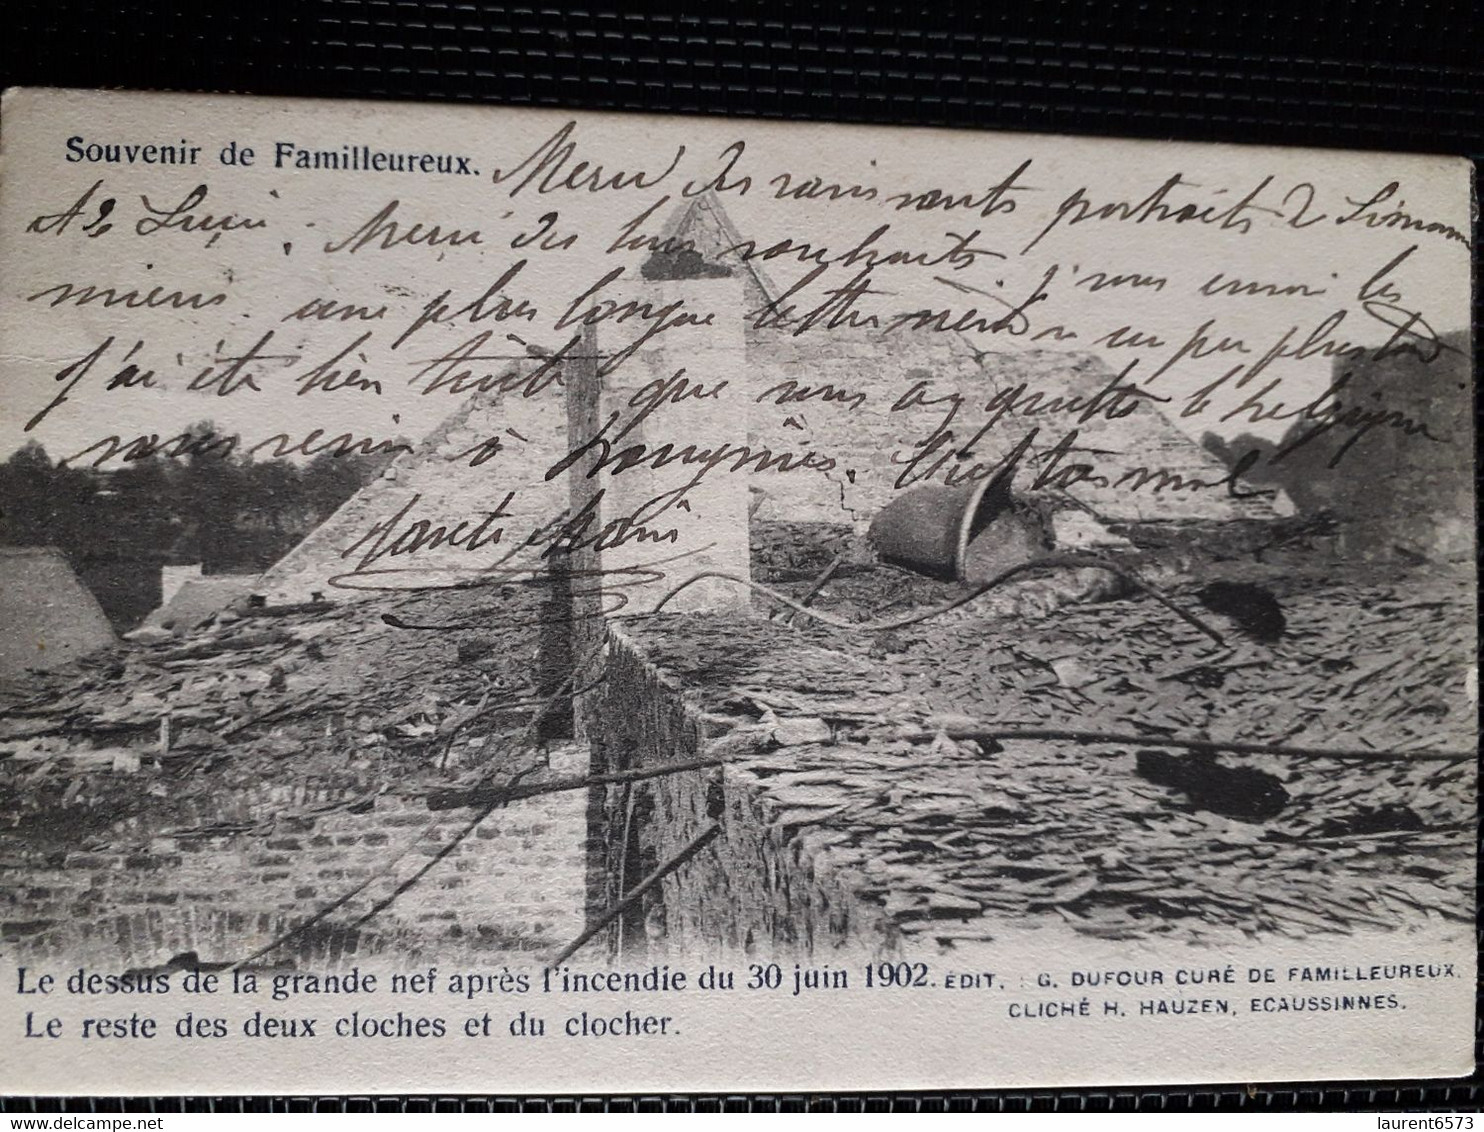 Souvenir de Familleureux. Merci des ravissants portraits de Simonne
et de Lucie. Merci des bons souhaits. je vous envoi les
miens. une plus longue lettre viendra un peu plus tard
j'ai été bien triste que vous ay quitté la Belgique
sans venir à
Le dessus de la grande nef après l'incendie du 30 juin 1902. ÉDIT. : G. DUFOUR CURÉ DE FAMILLEUREUX.
Le reste des deux cloches et du clocher. CLICHÉ H. HAUZEN, ECAUSSINNES.
laurent6573